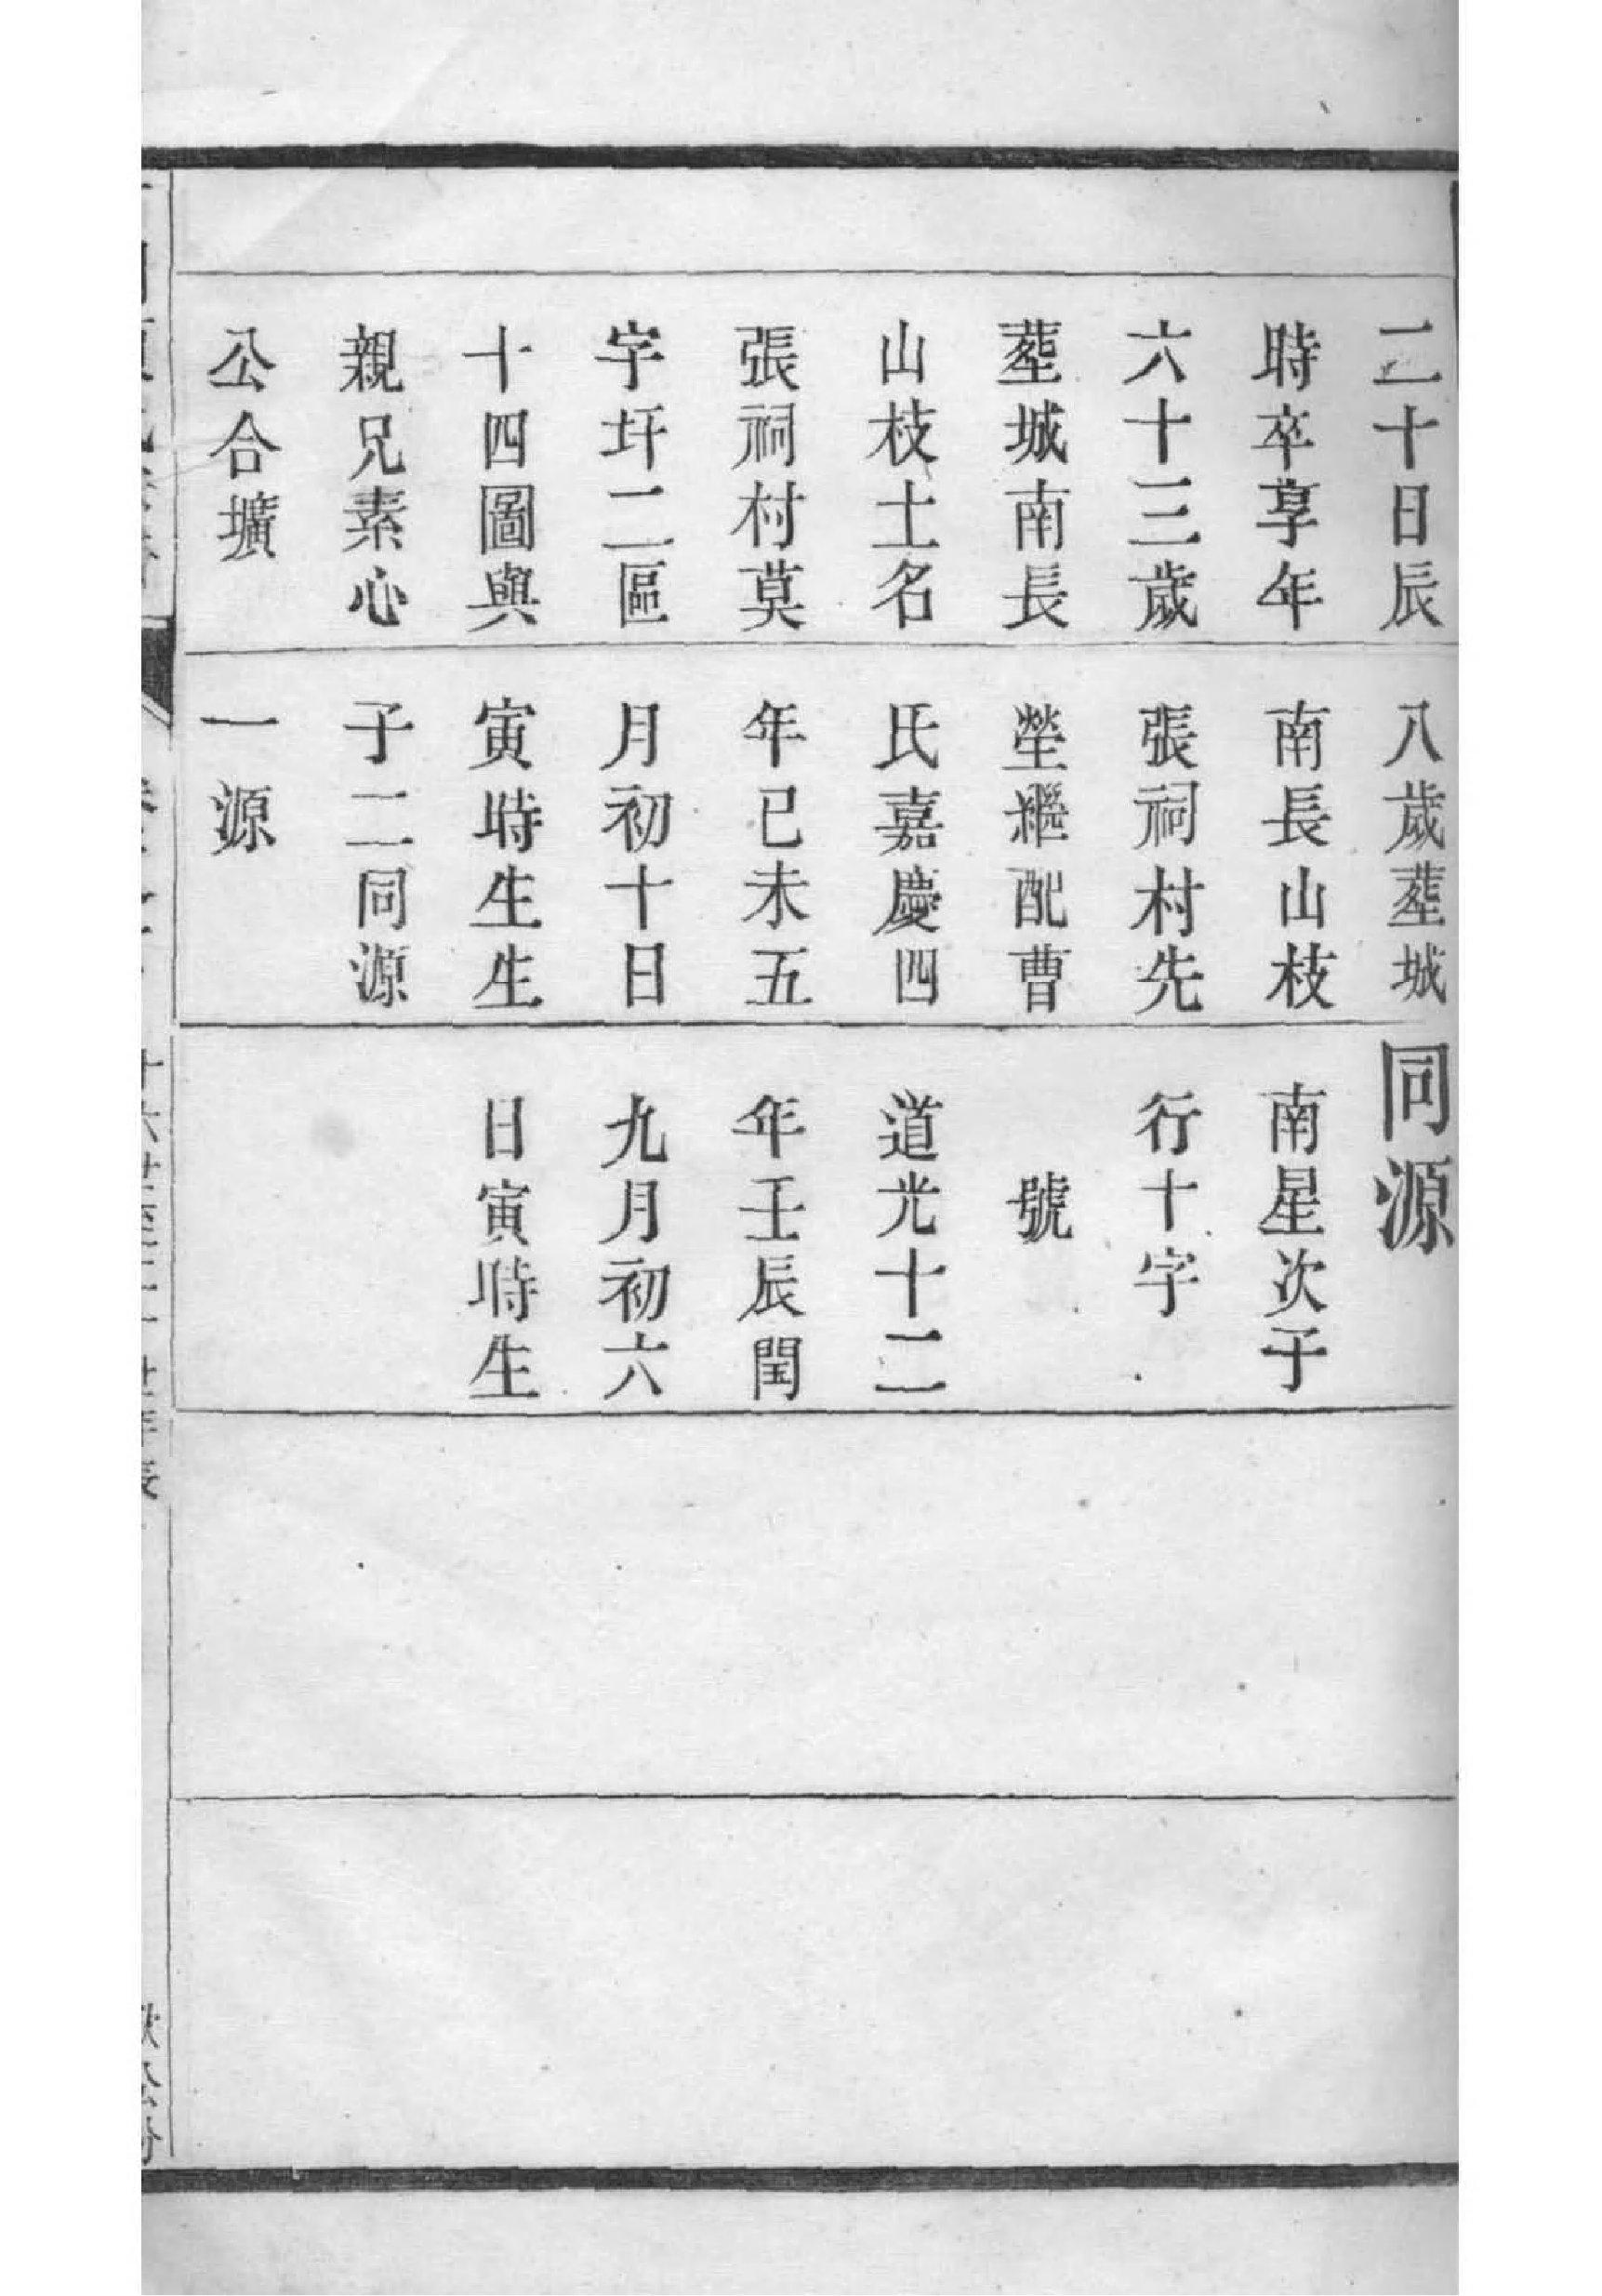 二十日辰
時卒享年
六十三歲
塟城南長
山枝土名
張祠村莫
字圩二區
十四圖與
親兄素心
公合壙
八歲塟城
南長山枝
張祠村先
塋繼配曹
氏嘉慶四
年己未五
月初十日
寅時生生
子二同源
一源
同源
南星次子
行十字
號
道光十二
年壬辰閏
九月初六
日寅時生